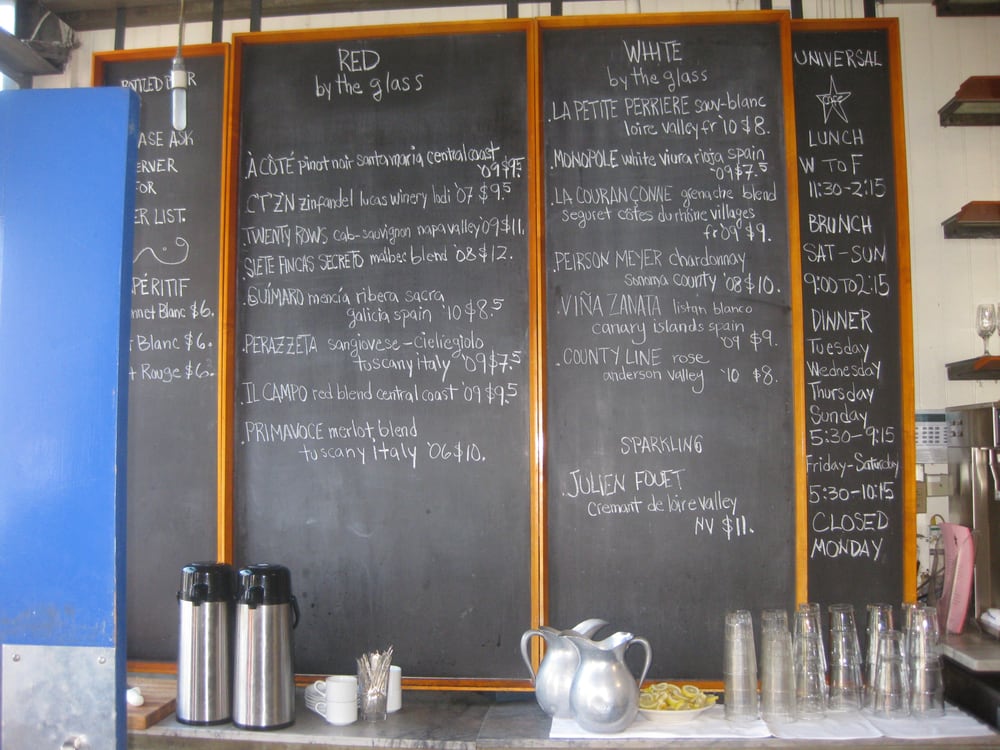 ASE ASK
ERVER
FOR
ER LIST.
PÉRITIF
Blanc $6.
Blanc $6.
Rouge $6.
RED
by the glass
À CÔTÉ pinot noir santa maria central coast
'09 $9.5
CTZN zinfandel lucas winery lodi '07 $9.5
.TWENTY ROWS cab-sauvignon napa valley '09 $11.
SIETE FINCAS SECRETO malbec blend '08 $12.
.GUÍMARO mencía ribera sacra
galicia spain '10 $8.5
.PERAZZETA sangiovese - cieliegiolo
tuscany italy '09 $7.5
.IL CAMPO red blend central coast '09 $9.5
PRIMAVOCE merlot blend
tuscany italy '06 $10.
WHITE
by the glass
.LA PETITE PERRIERE sauv-blanc
loire valley fr '10 $8.
.MONOPOLE white viura rioja spain
'09 $7.5
.LA COURANÇONNE grenache blend
seguret côtes du rhône villages
fr '09 $9.
.PEIRSON MEYER chardonnay
sonoma county '08 $10.
.VIÑA ZANATA listan blanco
canary islands spain
'09 $9.
.COUNTY LINE rose
anderson valley '10 $8.
SPARKLING
.JULIEN FOUET
cremant de loire valley
NV $11.
UNIVERSAL
CAFE
LUNCH
W TO F
11:30-2:15
BRUNCH
SAT-SUN
9:00 TO 2:15
DINNER
Tuesday
Wednesday
Thursday
Sunday
5:30-9:15
Friday-Saturday
5:30-10:15
CLOSED
MONDAY